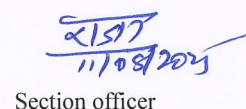 11/08/2025
Section officer